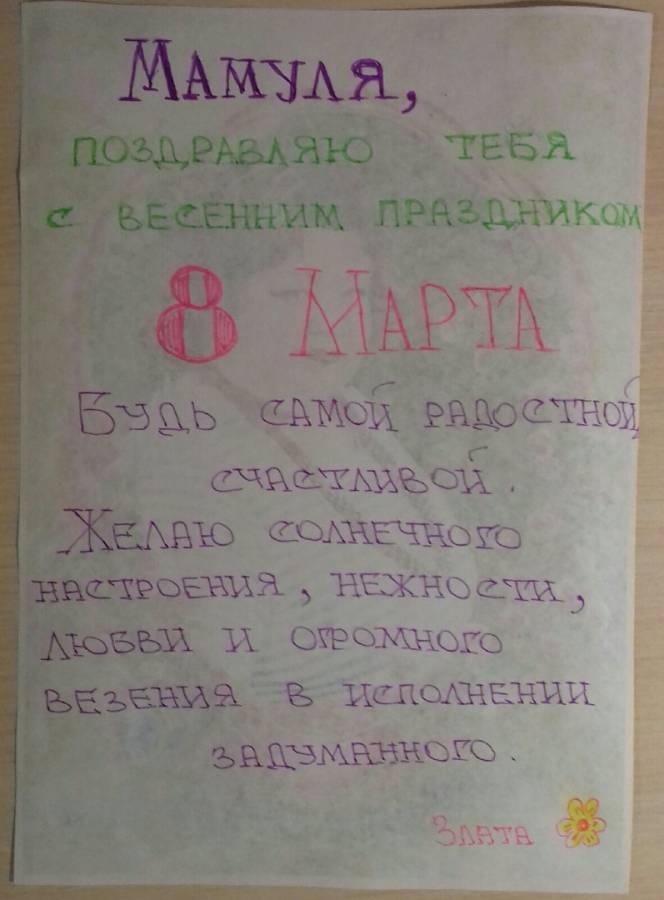 Мамуля,
поздравляю тебя
с весенним праздником
8 Марта
Будь самой радостной,
счастливой.
Желаю солнечного
настроения, нежности,
любви и огромного
везения в исполнении
задуманного.
Злата